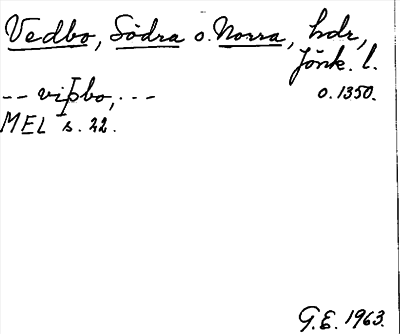 Vedbo, Södra o. Norra, hdr,
Jönk. l.
-- viþbo, ---
o. 1350.
MEL s. 22.
G.E. 1963.